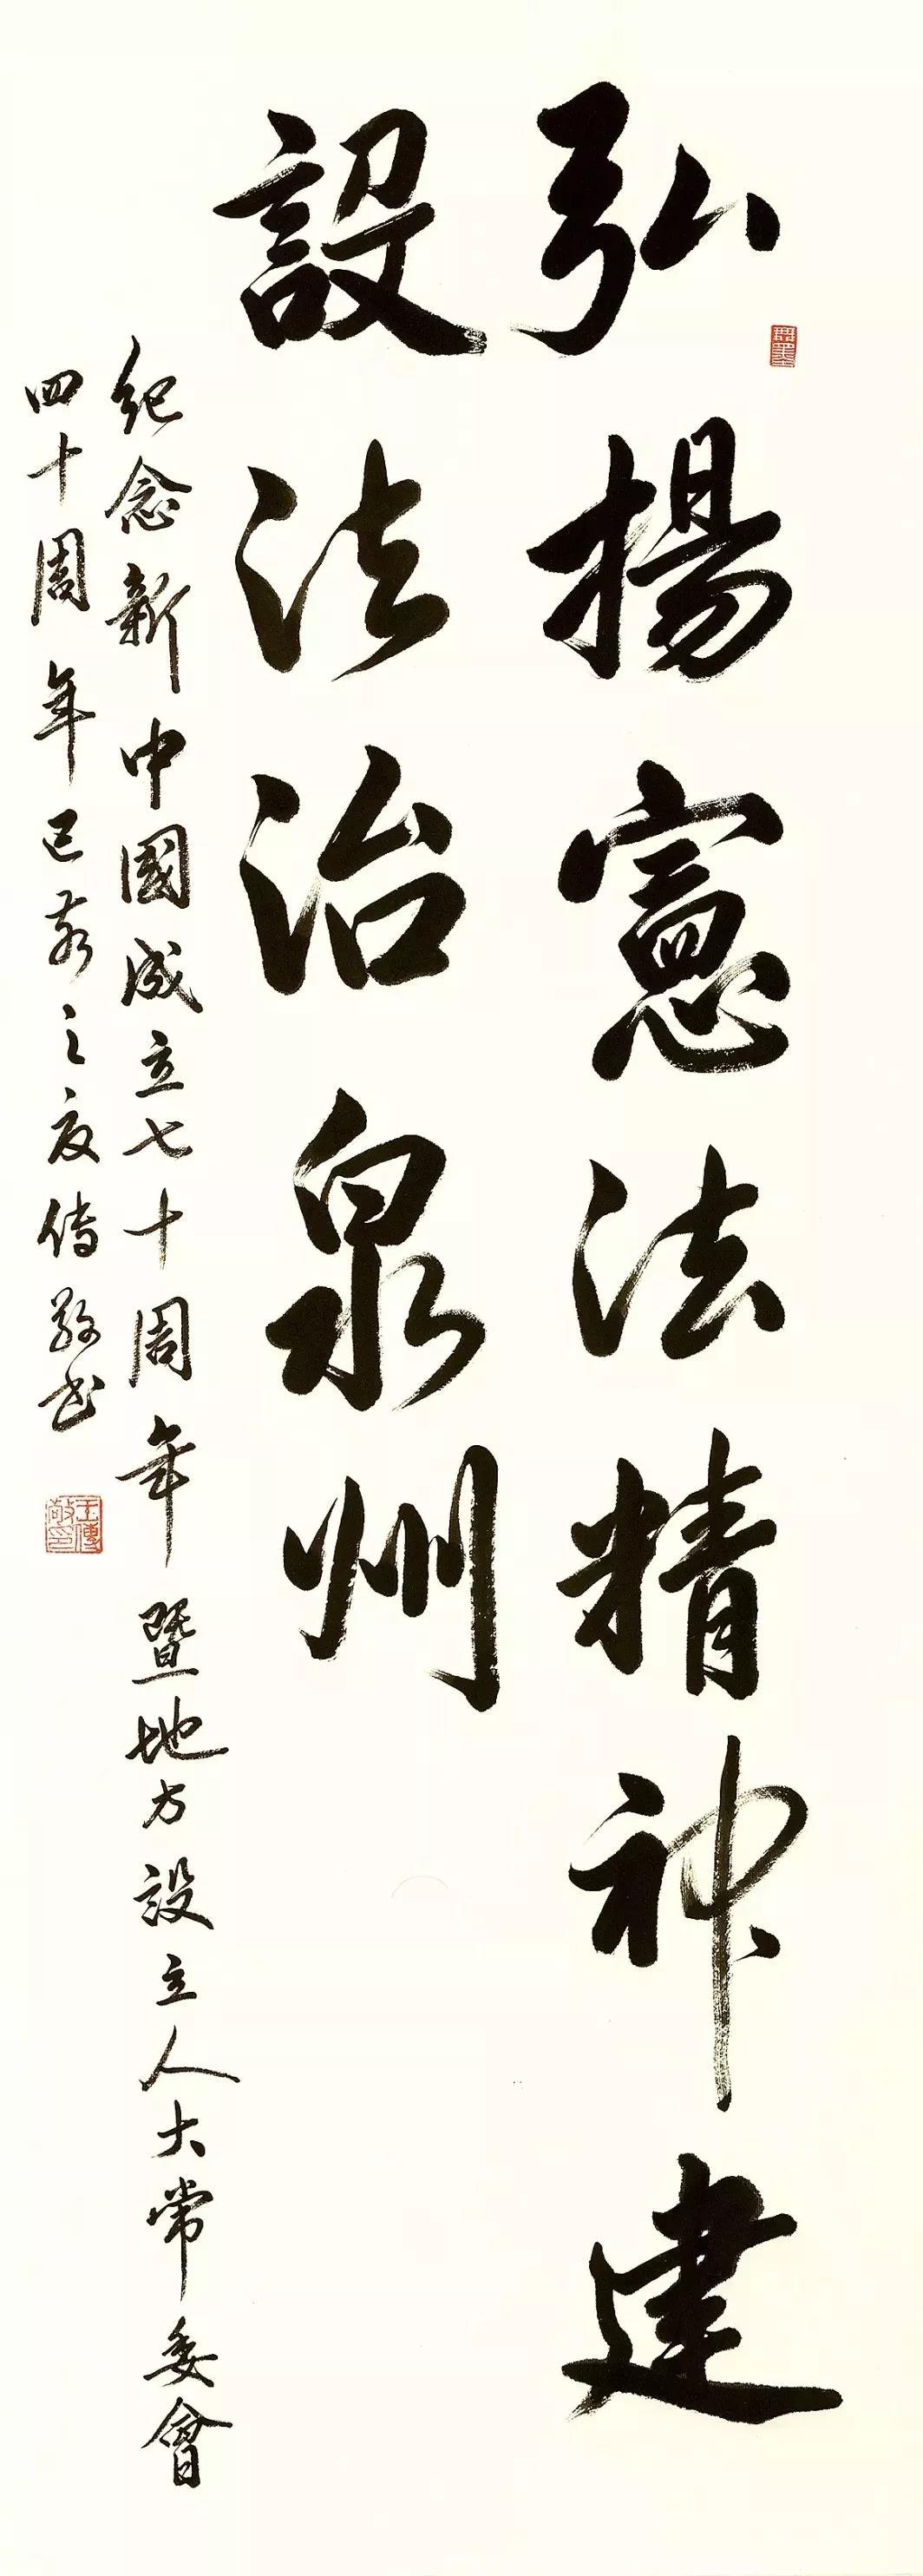 弘揚憲法精神建
設法治泉州
紀念新中國成立七十周年暨地方設立人大常委會
四十周年己亥之夏傳敬书
王傳敬印